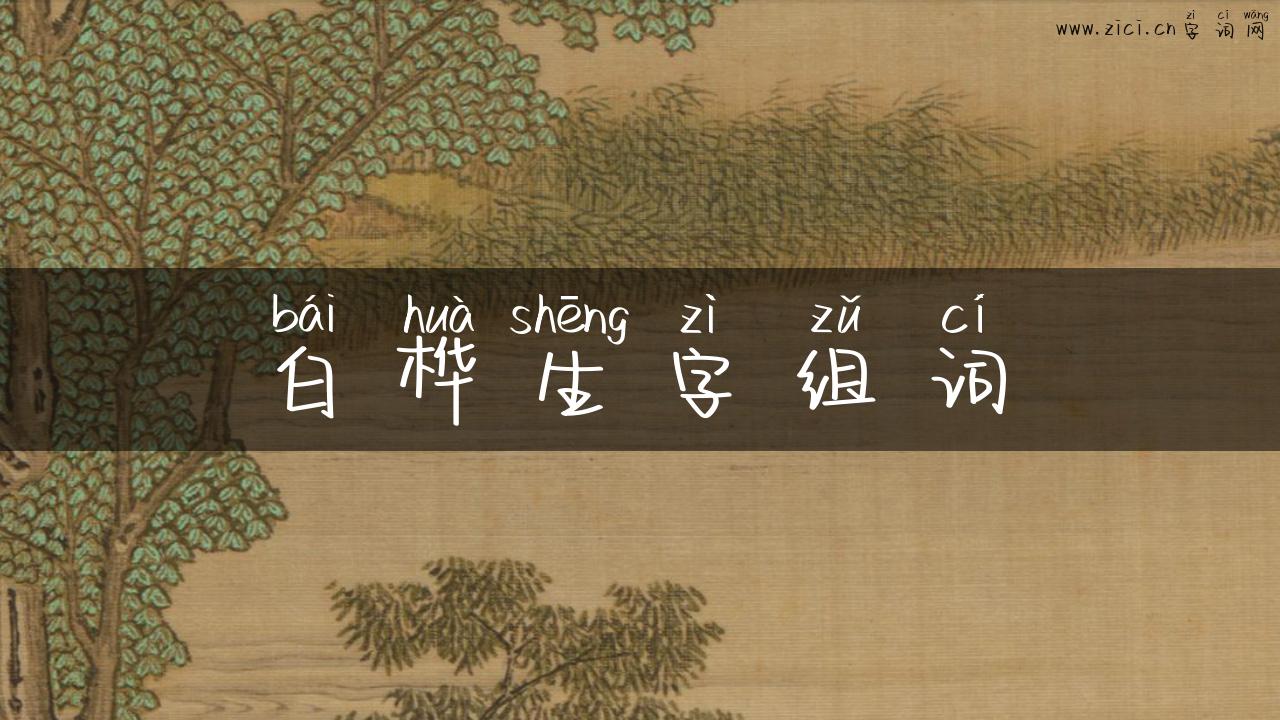 zì cí wǎng
www.zici.cn字词网
bái huà shēng zì zǔ cí
白桦生字组词